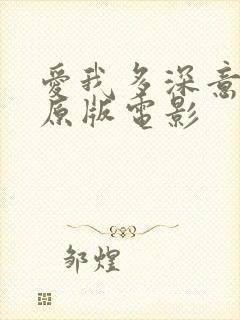 愛我多深意
原版電影
邹煌